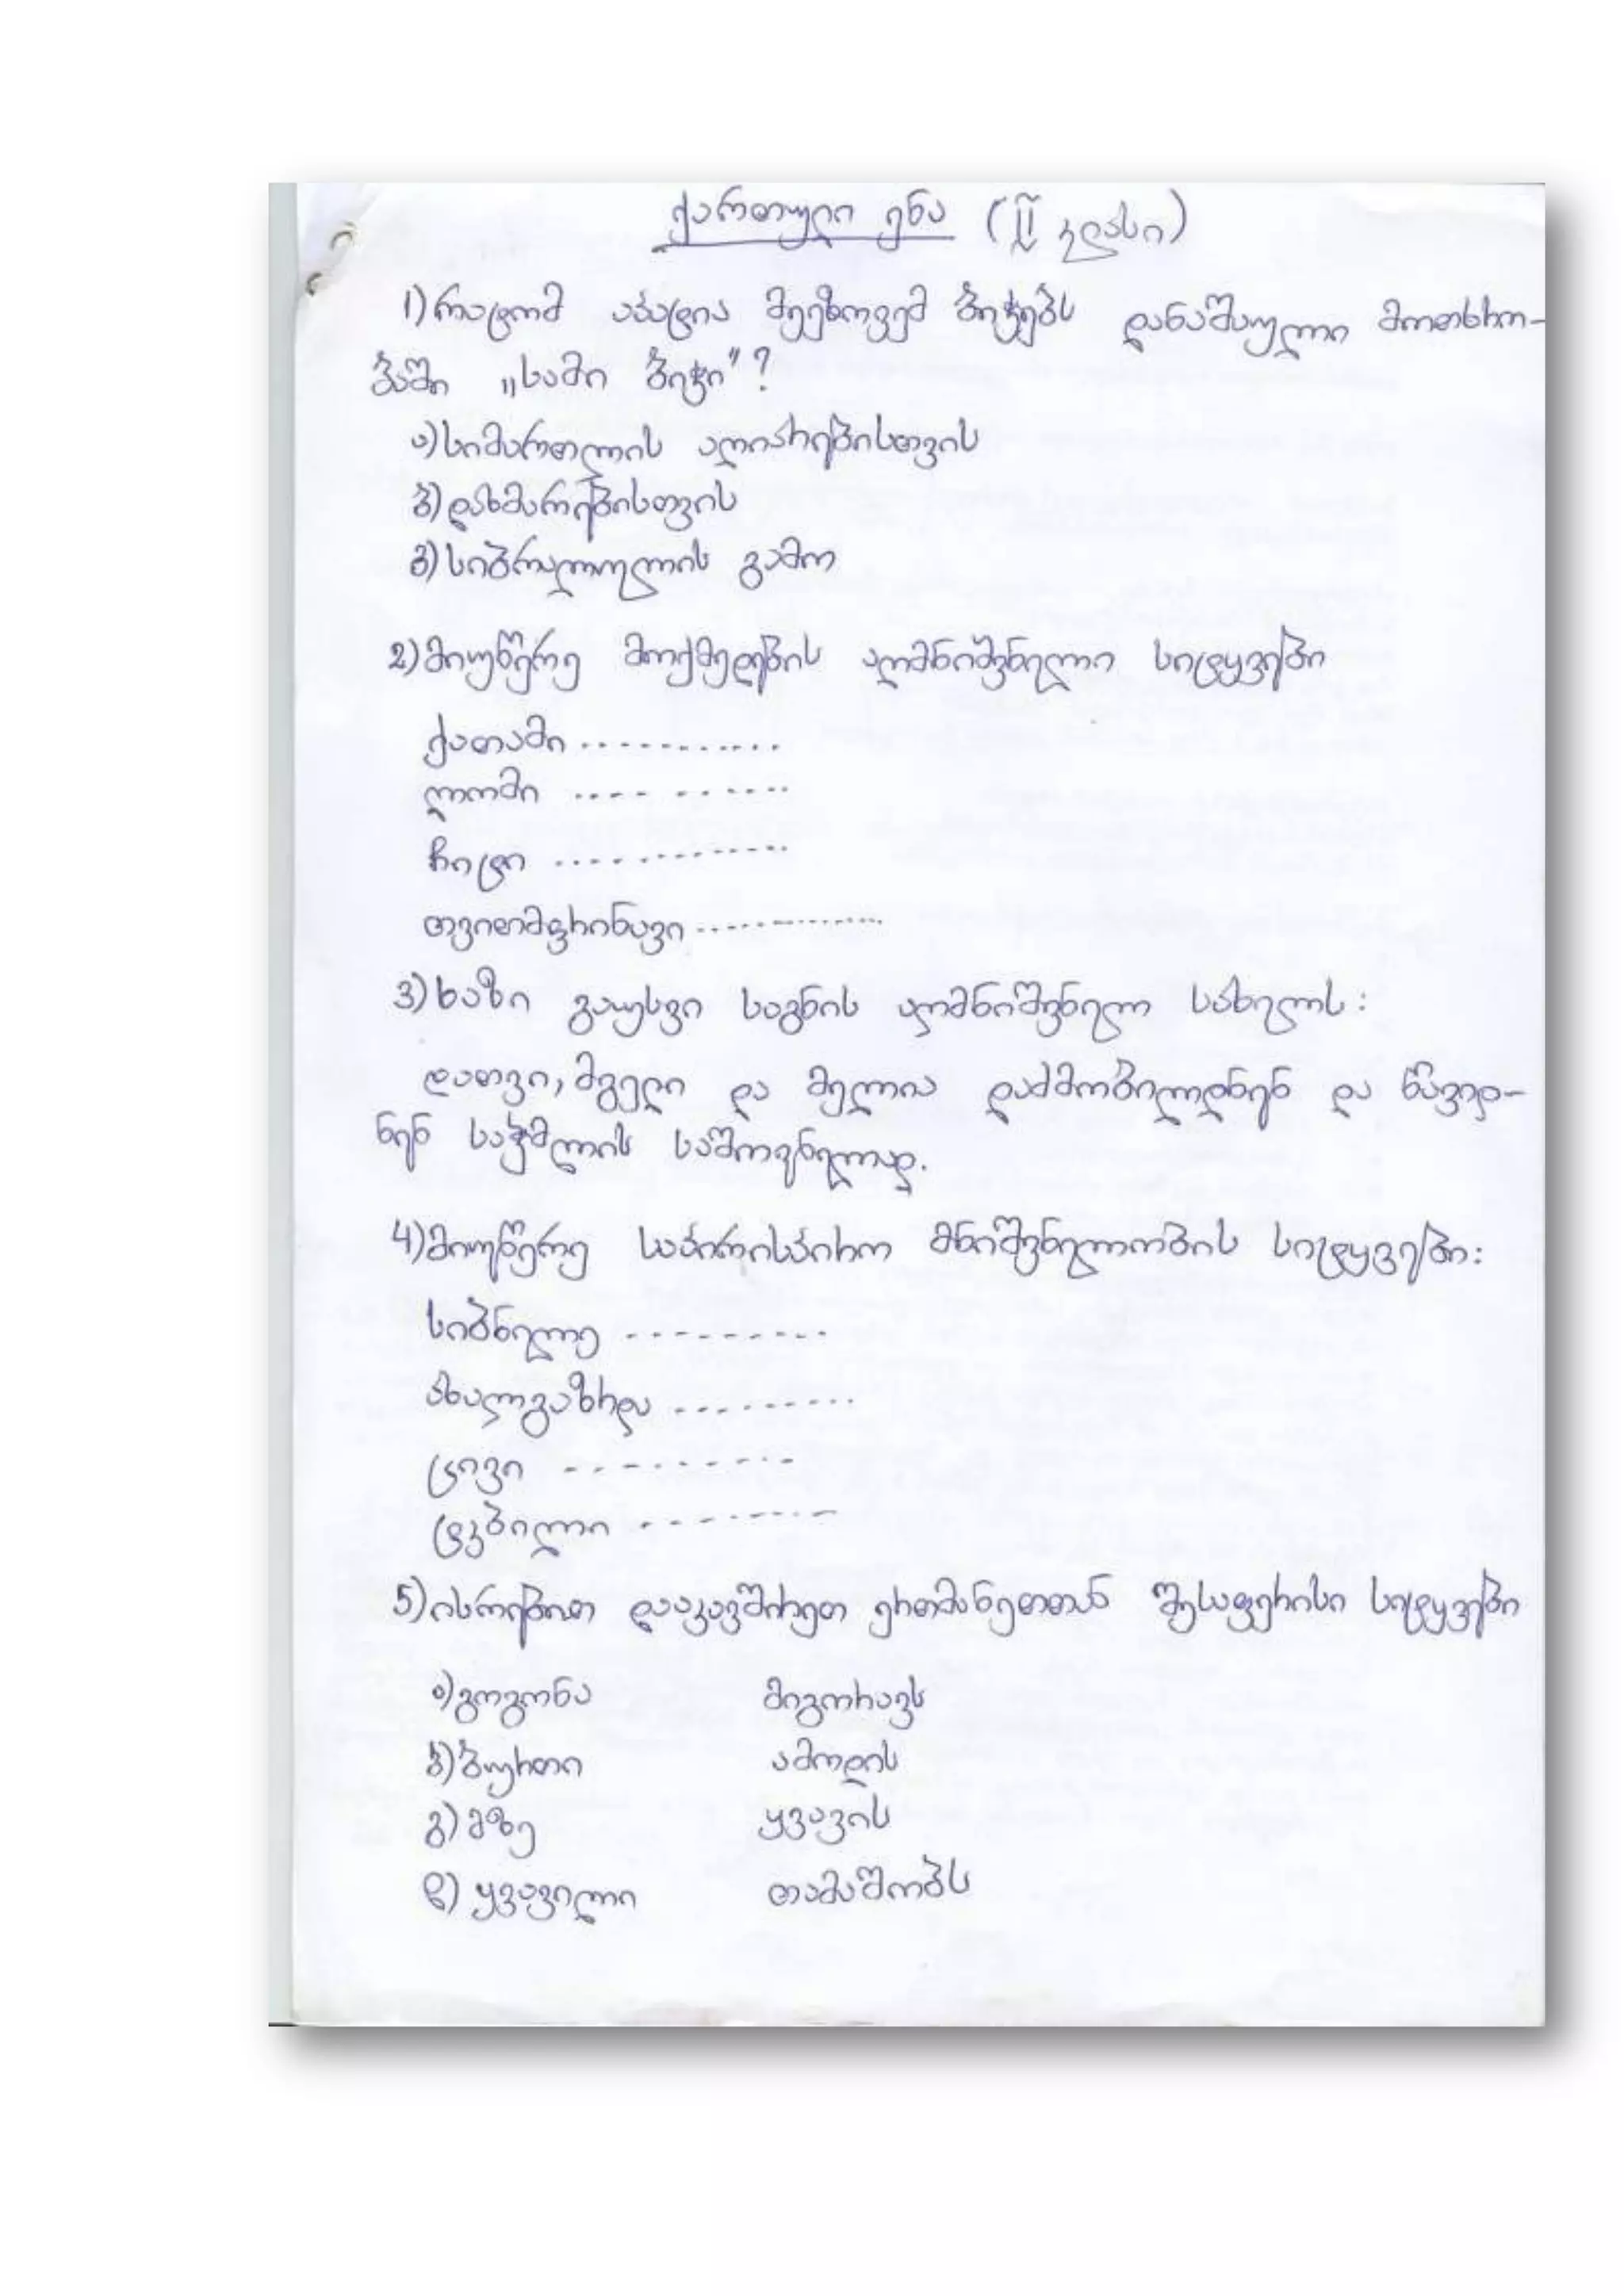 ქართული ენა (II კლასი)
1) რატომ აპატია მეეზოვემ ბიჭებს დანაშაული მოთხრო-
ბაში „სამი ბიჭი"?
ა) სიმართლის აღიარებისთვის
ბ) დახმარებისთვის
გ) სიბრალულის გამო
2) მიუწერე მოქმედების აღმნიშვნელი სიტყვები
ქათამი ............
ლომი ...........
ჩიტი .............
თვითმფრინავი ...............
3) ხაზი გაუსვი საგნის აღმნიშვნელ სახელს:
დათვი, მგელი და მელია დაძმობილდნენ და წავიდ-
ნენ საჭმლის საშოვნელად.
4) მიუწერე საპირისპირო მნიშვნელობის სიტყვები:
სიბნელე ----------
ახალგაზრდა ---------
ცივი ----------
ტკბილი ----------
5) ისრებით დააკავშირეთ ერთმანეთთან შესაფერისი სიტყვები
ა) გოგონა მიგორავს
ბ) ბურთი ამოდის
გ) მზე ყვავის
დ) ყვავილი თამაშობს